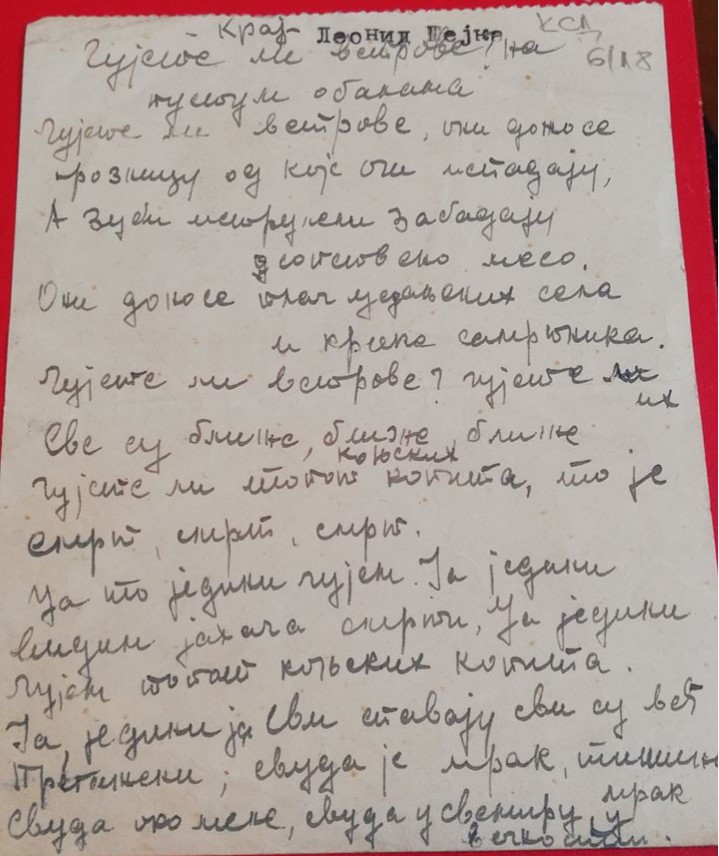 Крај Леонид Шејка КСД
Чујете ли ветрове? на 6/18
пустум обалама
Чујете ли ветрове, они доносе
грозницу од које очи испадају,
А зуби иструлели забадају
у сопствено месо.
Они доносе плач сељанских села
и крике самртника.
Чујете ли ветрове? чујете ли
их
Све су ближе, ближе, ближе
коњских
Чујете ли топот копита, то је
смрт, смрт, смрт.
Ја то једини чујем. Ја једини
видим јахача смрти, Ја једини
чујем топот коњских копита.
Ја, једини ја. Сви спавају сви су већ
; свуда је мрак, тишина
мрак
Свуда око мене, свуда у свемиру, у
вечности.